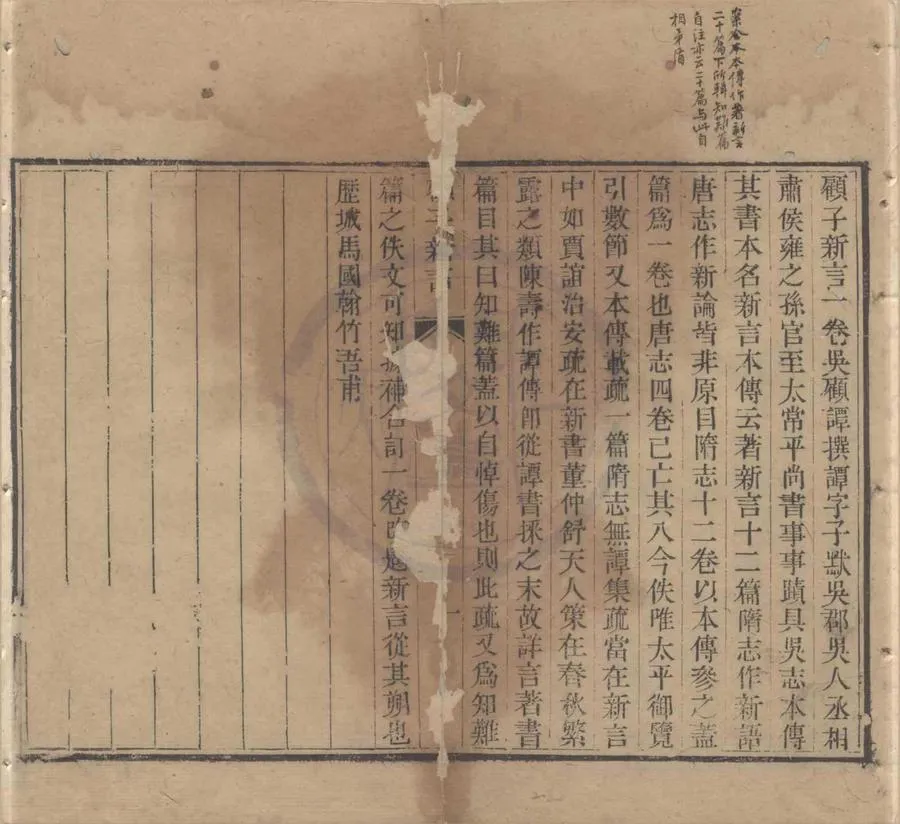 案今本本傳作著新言
二十篇下所輯知難篇
自注亦云二十篇与此自
相矛盾
顧子新言一卷吳顧譚撰譚字子默吳郡吳人丞相
肅侯雍之孫官至太常平尚書事事蹟具吳志本傳
其書本名新言本傳云著新言十二篇隋志作新語
唐志作新論皆非原目隋志十二卷以本傳參之蓋
篇為一卷也唐志四卷已亡其八今佚唯太平御覽
引數節又本傳載疏一篇隋志無譚集疏當在新言
中如賈誼治安疏在新書董仲舒天人策在春秋繁
露之類陳壽作譚傳即從譚書採之末故詳言著書
篇目其曰知難篇蓋以自悼傷也則此疏又為知難
新言
一
篇之佚文可知據補合訂一卷改題新言從其朔也
歷城馬國翰竹吾甫